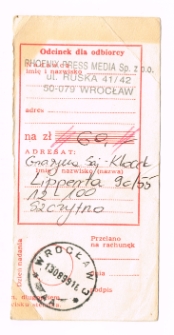 Odcinek dla odbiorcy
PHOENIX PRESS MEDIA Sp. z o.o.
imię i nazwisko
ul. RUSKA 41/42
50-079 WROCŁAW
adres
na zł 60,-
ADRESAT:
Grażyna
(imię i nazwisko (nazwa)
Lipperta 90/55
12-100
Szczytno
Przelano
na rachunek
WROCŁAW 5
Dzień nadania